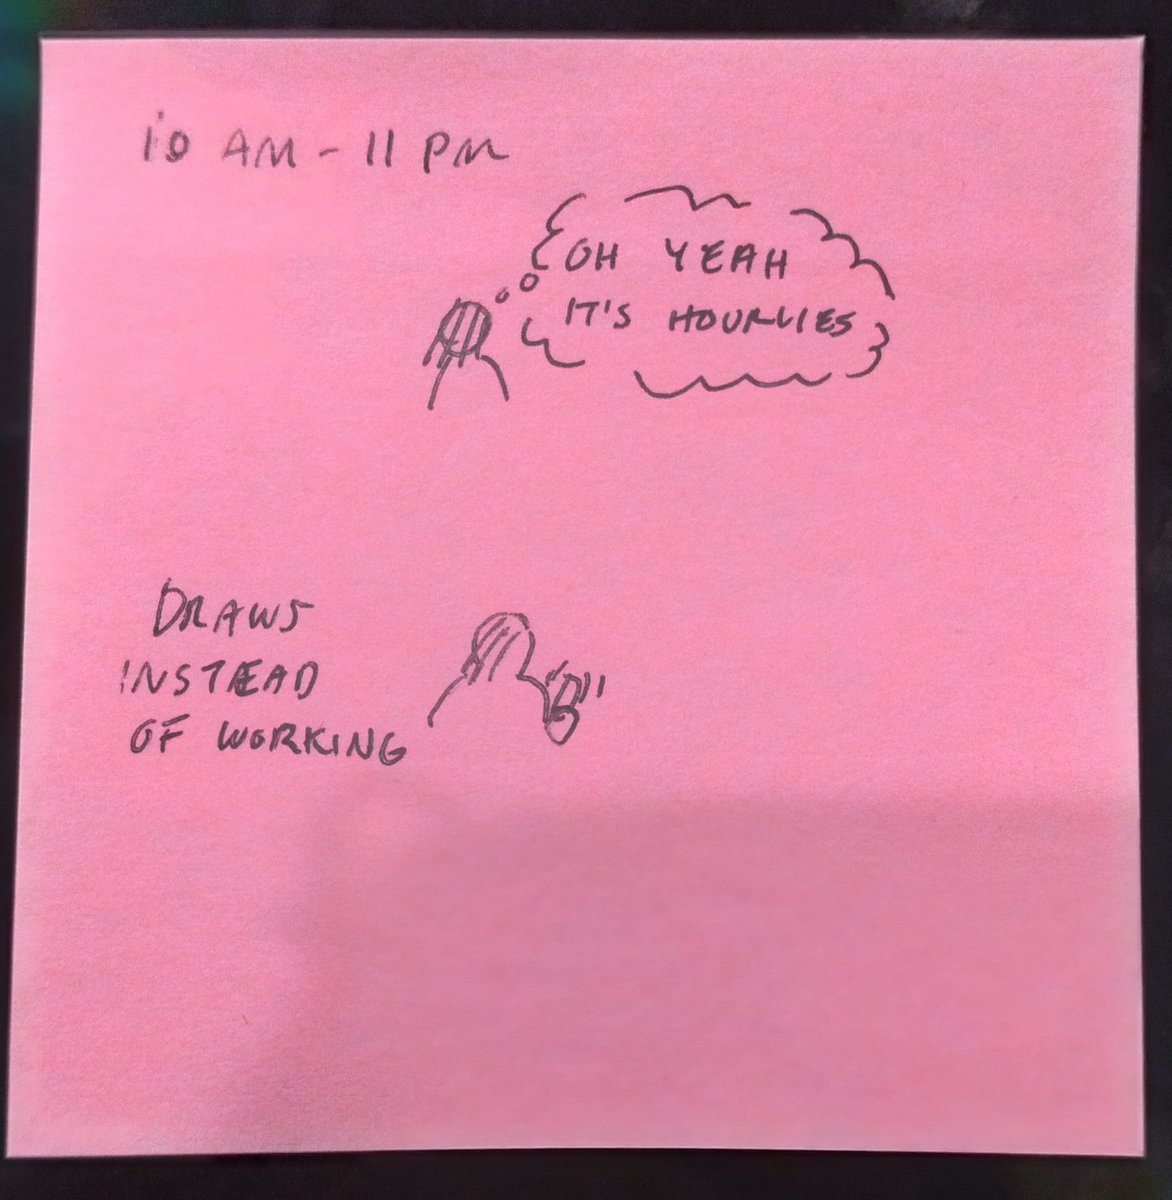 10 AM - 11 PM
OH YEAH
IT'S HOURLIES
DRAWS
INSTEAD
OF WORKING